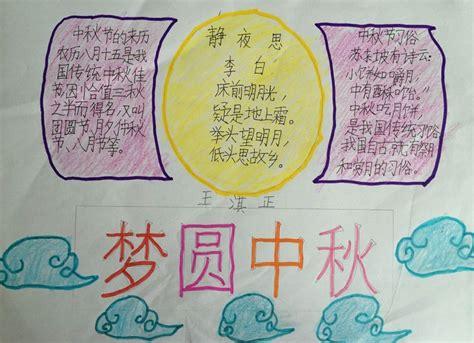 中秋节的来历
农历八月十五是我
国传统中秋佳
节因恰值三秋
之半而得名,又叫
团圆节、月夕仲秋
节、八月节等。
静夜思
李白
床前明月光,
疑是地上霜。
举头望明月,
低头思故乡。
中秋节习俗
苏东坡有诗云:
小饼如嚼月,
中有酥和饴。"
中秋吃月饼,
是我国传统习俗
我国自古就有祭月
和赏月的习俗。
王淇正
梦圆中秋